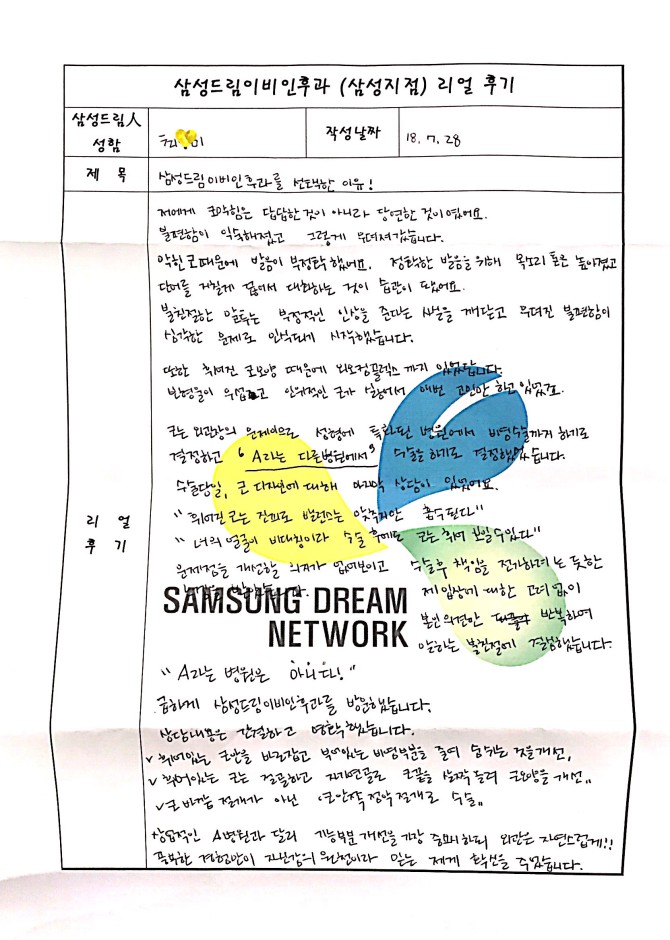 삼성드림이비인후과 (삼성지점) 리얼 후기
삼성드림人 성함
작성날짜
18. 7. 28
제 목
삼성드림이비인후과를 선택한 이유!
리 얼 후 기
저에게 코막힘은 답답한것이 아니라 당연한 것이였어요.
불편함이 익숙해졌고 그렇게 무뎌져갔습니다.
막힌 코때문에 발음이 부정확했어요. 정확한 발음을 위해 목소리 톤은 높아졌고
단어를 거칠게 끊어서 대화하는 것이 습관이 됐어요.
불친절한 말투는 부정적인 인상을 준다는 사실을 깨닫고 무뎌진 불편함이
심각한 문제로 인식되기 시작했습니다.
또한 휘어진 코모양 때문에 외모컴플렉스 까지 있었답니다.
부작용들이 무섭고 인위적인 코가 싫어서 매번 고민만 하고 있었죠.
코는 외관상의 문제이므로 성형에 특화된 병원에서 비염수술까지 하기로
결정하고 "A라는 다른병원에서" 수술을 하기로 결정했었습니다.
수술당일, 코 디자인에 대해 마지막 상담이 있었어요.
"휘어진 코는 진피로 밸런스는 맞추지만 흡수된다"
"너의 얼굴이 비대칭이라 수술 후에도 코는 휘어 보일수있다"
문제점을 개선할 의지가 없어보이고 수술후 책임을 전가하려는 듯한
제입장에 대한 고려 없이
본인 의견만 반복하여
말하는 불친절에 결심했습니다.
SAMSUNG DREAM
NETWORK
"A라는 병원은 아니다!"
급하게 삼성드림이비인후과를 방문했습니다.
상담내용은 간결하고 명확했습니다.
v 휘어있는 코안을 바로잡고 부어있는 비염부분을 줄여 숨쉬는 것을 개선,
v 휘어있는 코는 절골하고 자가연골로 코끝을 살짝 올려 코모양을 개선,,
v 코 바깥 절개가 아닌 코안쪽 절개로 수술,,
상업적인 A병원과 달리 기능부분 개선을 가장 중요시하되 외관은 자연스럽게!!
풍부한 경험만이 자신감의 원천이라 믿는 제게 확신을 주었습니다.